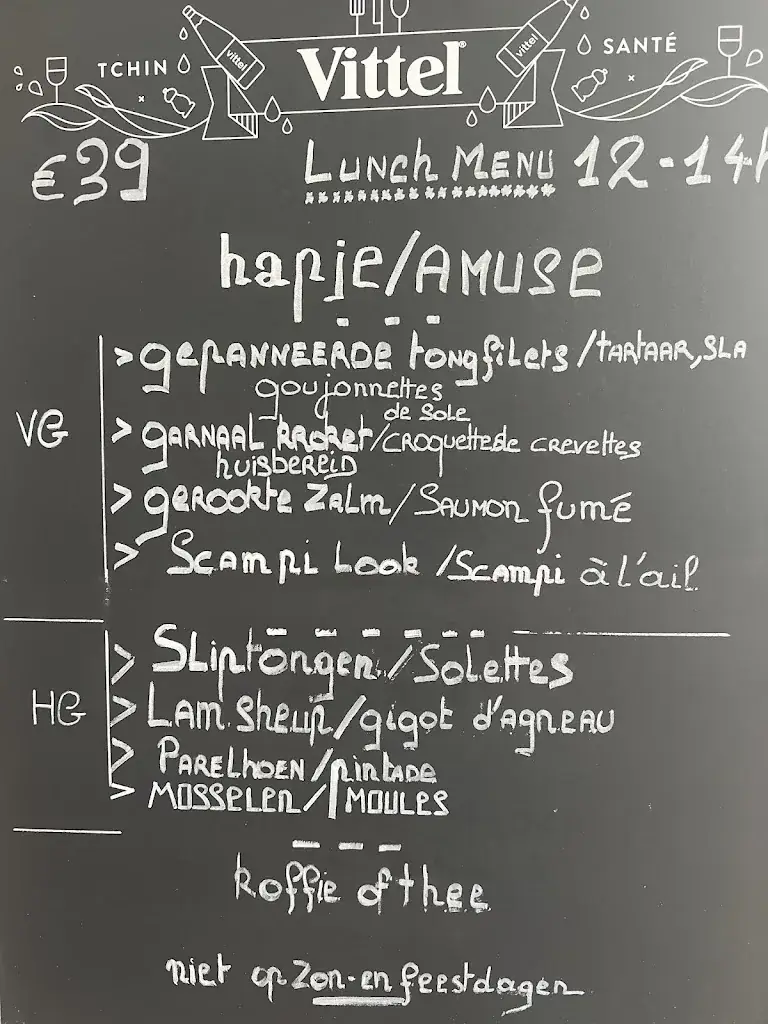 TCHIN
vittel
Vittel®
vittel
SANTÉ
€39
LUNCH MENU 12-14h
hapje/AMUSE
VG
> GEPANNEERDE tongfilets/TARTAAR, SLA
goujonnettes
de sole
> GARNAAL KROKET/CROQUETTE de CREVETTES
huisbereid
> GEROOKTE ZALM/SAUMON fumé
> Scampi Look/Scampi à l'ail
HG
> Sliptongen/Solettes
> Lam sheup/gigot d'agneau
> PARELHOEN/pintade
> MOSSELEN/MOULES
koffie of thee
niet op Zon-en feestdagen